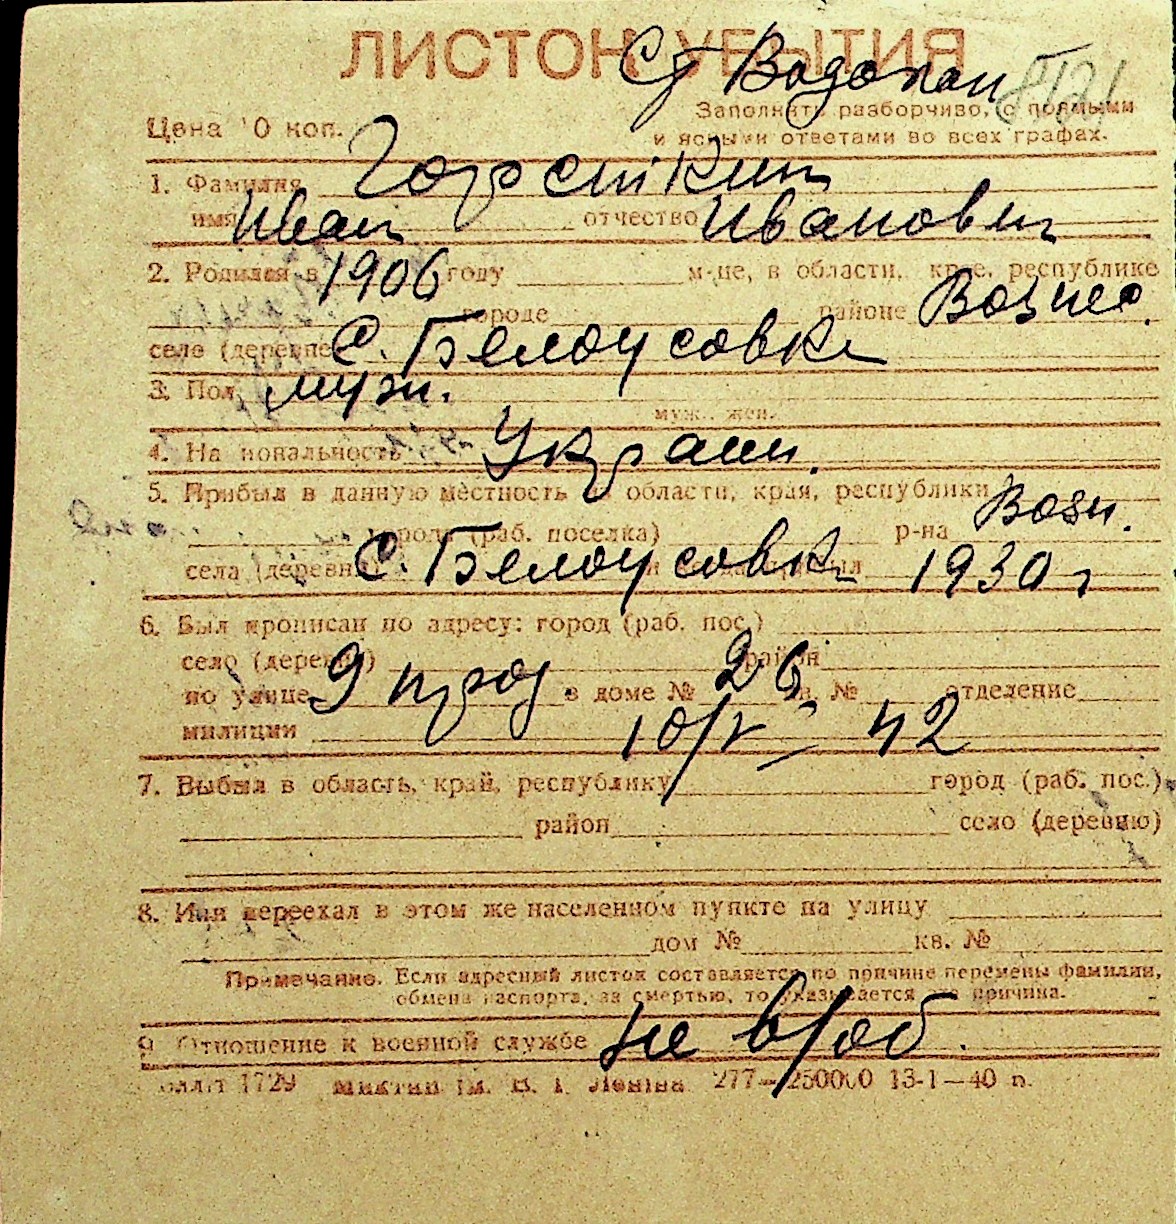 ЛИСТОК УБЫТИЯ
Ст Водопой
Заполнять разборчиво, с прямыми
Цена 10 коп.
и ясными ответами во всех графах.
1. Фамилия Горсткин
имя Иван отчество Иванович
2. Родился в 1906 году м-це, в области, крае, республике
городе районе Вознес.
село (деревне) с. Белоусовка
3. Пол муж.
муж., жен.
4. Национальность Украин.
5. Прибыл в данную местность из области, края, республики
города (раб. поселка) р-на Возн.
села (деревни) с. Белоусовка 1930 г
6. Был прописан по адресу: город (раб. пос.)
село (деревня) район
по улице 9 прод в доме № 26 кв. № отделение
милиции 10/V - 42
7. Выбыл в область, край, республику город (раб. пос.)
район село (деревню)
8. Или переехал в этом же населенном пункте на улицу
дом № кв. №
Примечание. Если адресный листок составляется по причине перемены фамилии,
обмена паспорта, за смертью, то указывается эта причина.
9. Отношение к военной службе не в/об.
1729 277—250000 13-1—40 п.